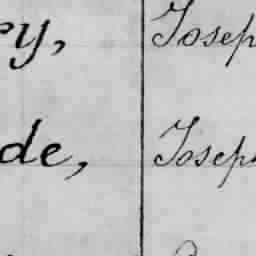 ry, Josep
de, Josep